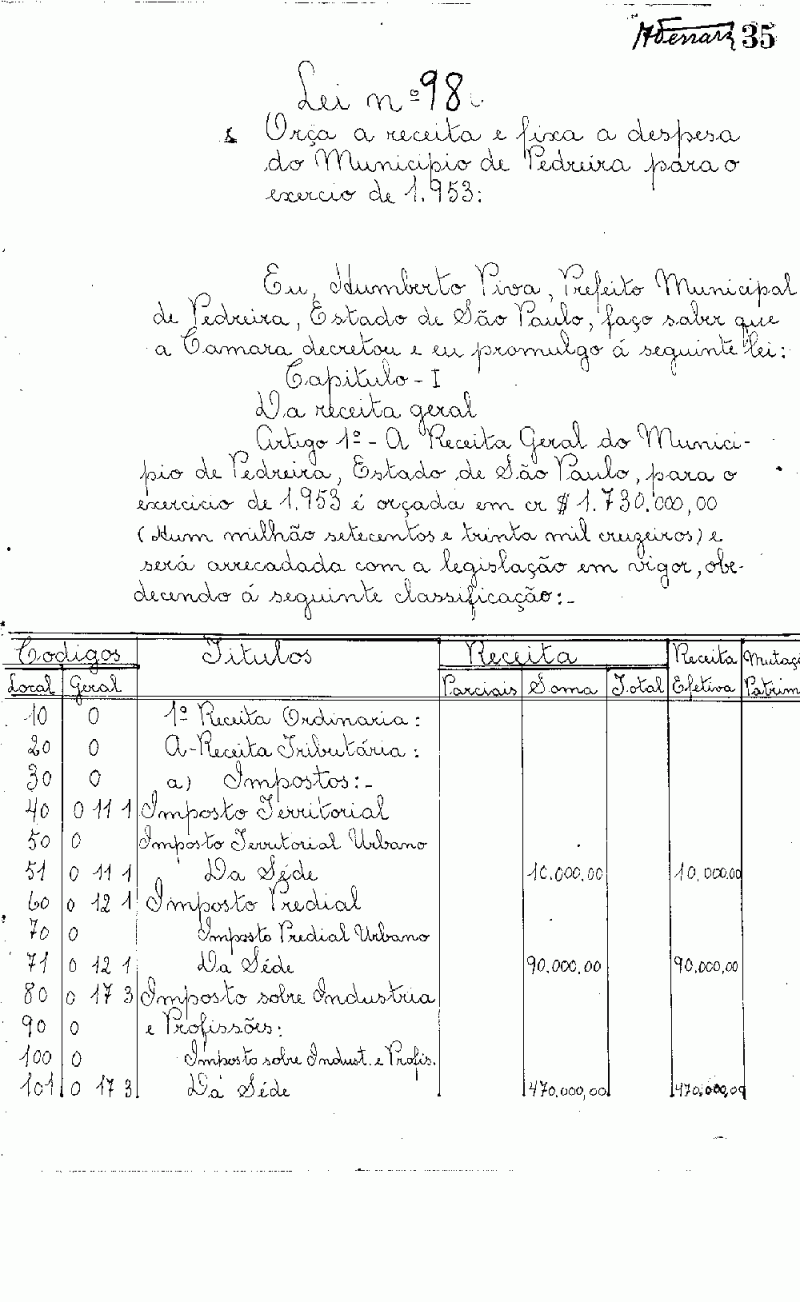 35
Lei nº 98
Orça a receita e fixa a despesa
do Municipio de Pedreira para o
exercio de 1.953:
Eu, Humberto Piva, Prefeito Municipal
de Pedreira, Estado de São Paulo, faço saber que
a Camara decretou e eu promulgo á seguinte lei:
Capitulo - I
Da receita geral
Artigo 1º - A Receita Geral do Munici-
pio de Pedreira, Estado de São Paulo, para o
exercicio de 1.953 é orçada em cr $ 1.730.000,00
(Hum milhão setecentos e trinta mil cruzeiros) e
será arrecadada com a legislação em vigor, obe-
decendo á seguinte classificação:-
Codigos Titulos Receita Receita Mutaçõ
Local Geral Parciais Soma Total Efetiva Patrim
10 0 1º Receita Ordinaria:
20 0 A-Receita Tributária:
30 0 a) Impostos:-
40 0 11 1 Imposto Territorial
50 0 Imposto Territorial Urbano
51 0 11 1 Da Séde 10.000,00 10.000,00
60 0 12 1 Imposto Predial
70 0 Imposto Predial Urbano
71 0 12 1 Da Séde 90.000,00 90.000,00
80 0 17 3 Imposto sobre Industria
90 0 e Profissões:
100 0 Imposto sobre Indust. e Profis.
101 0 17 3 Da Séde 470.000,00 470.000,00